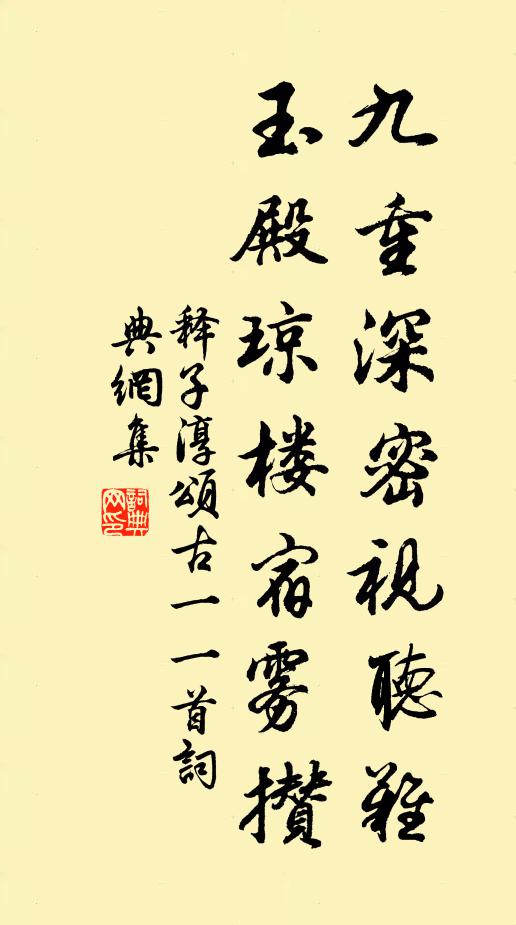 九重深密視聽難
玉殿琼楼宿雾攒
释子淳頌古一一首詞
典網集
詞典網印